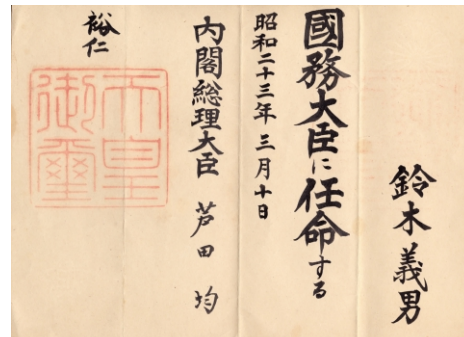 鈴木義男
國務大臣に任命する
昭和二十三年三月十日
内閣総理大臣 芦田均
裕仁
天皇御璽